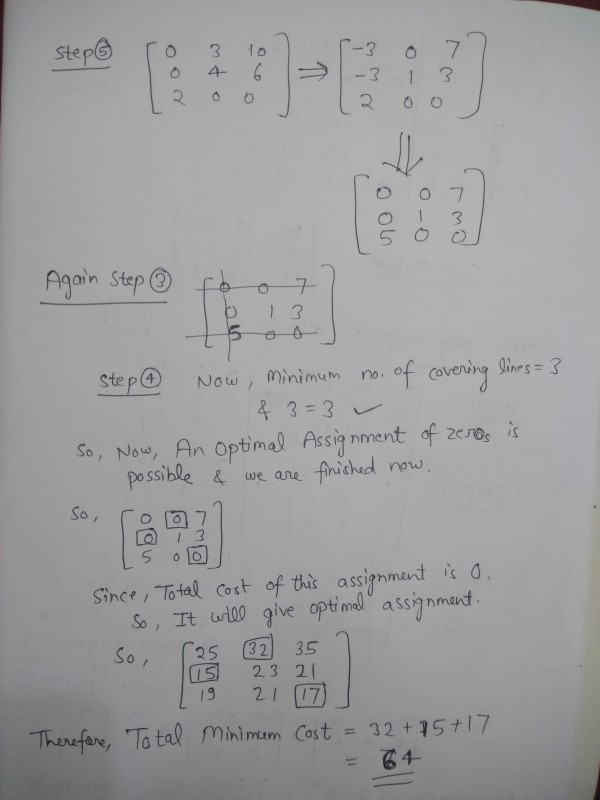 Step ⑤ [0 3 10 ⇒ [-3 0 7
0 4 6 -3 1 3
2 0 0] 2 0 0]
⇓
[0 0 7
0 1 3
5 0 0]
Again Step ③ [0 0 7
0 1 3
5 0 0]
Step ④ Now, Minimum no. of covering lines = 3
& 3 = 3 ✓
So, Now, An Optimal Assignment of zeros is
possible & we are finished now.
So, [0 0 7
0 1 3
5 0 0]
Since, Total cost of this assignment is 0.
So, It will give optimal assignment.
So, [25 32 35
15 23 21
19 21 17]
Therefore, Total Minimum Cost = 32 + 15 + 17
= 64